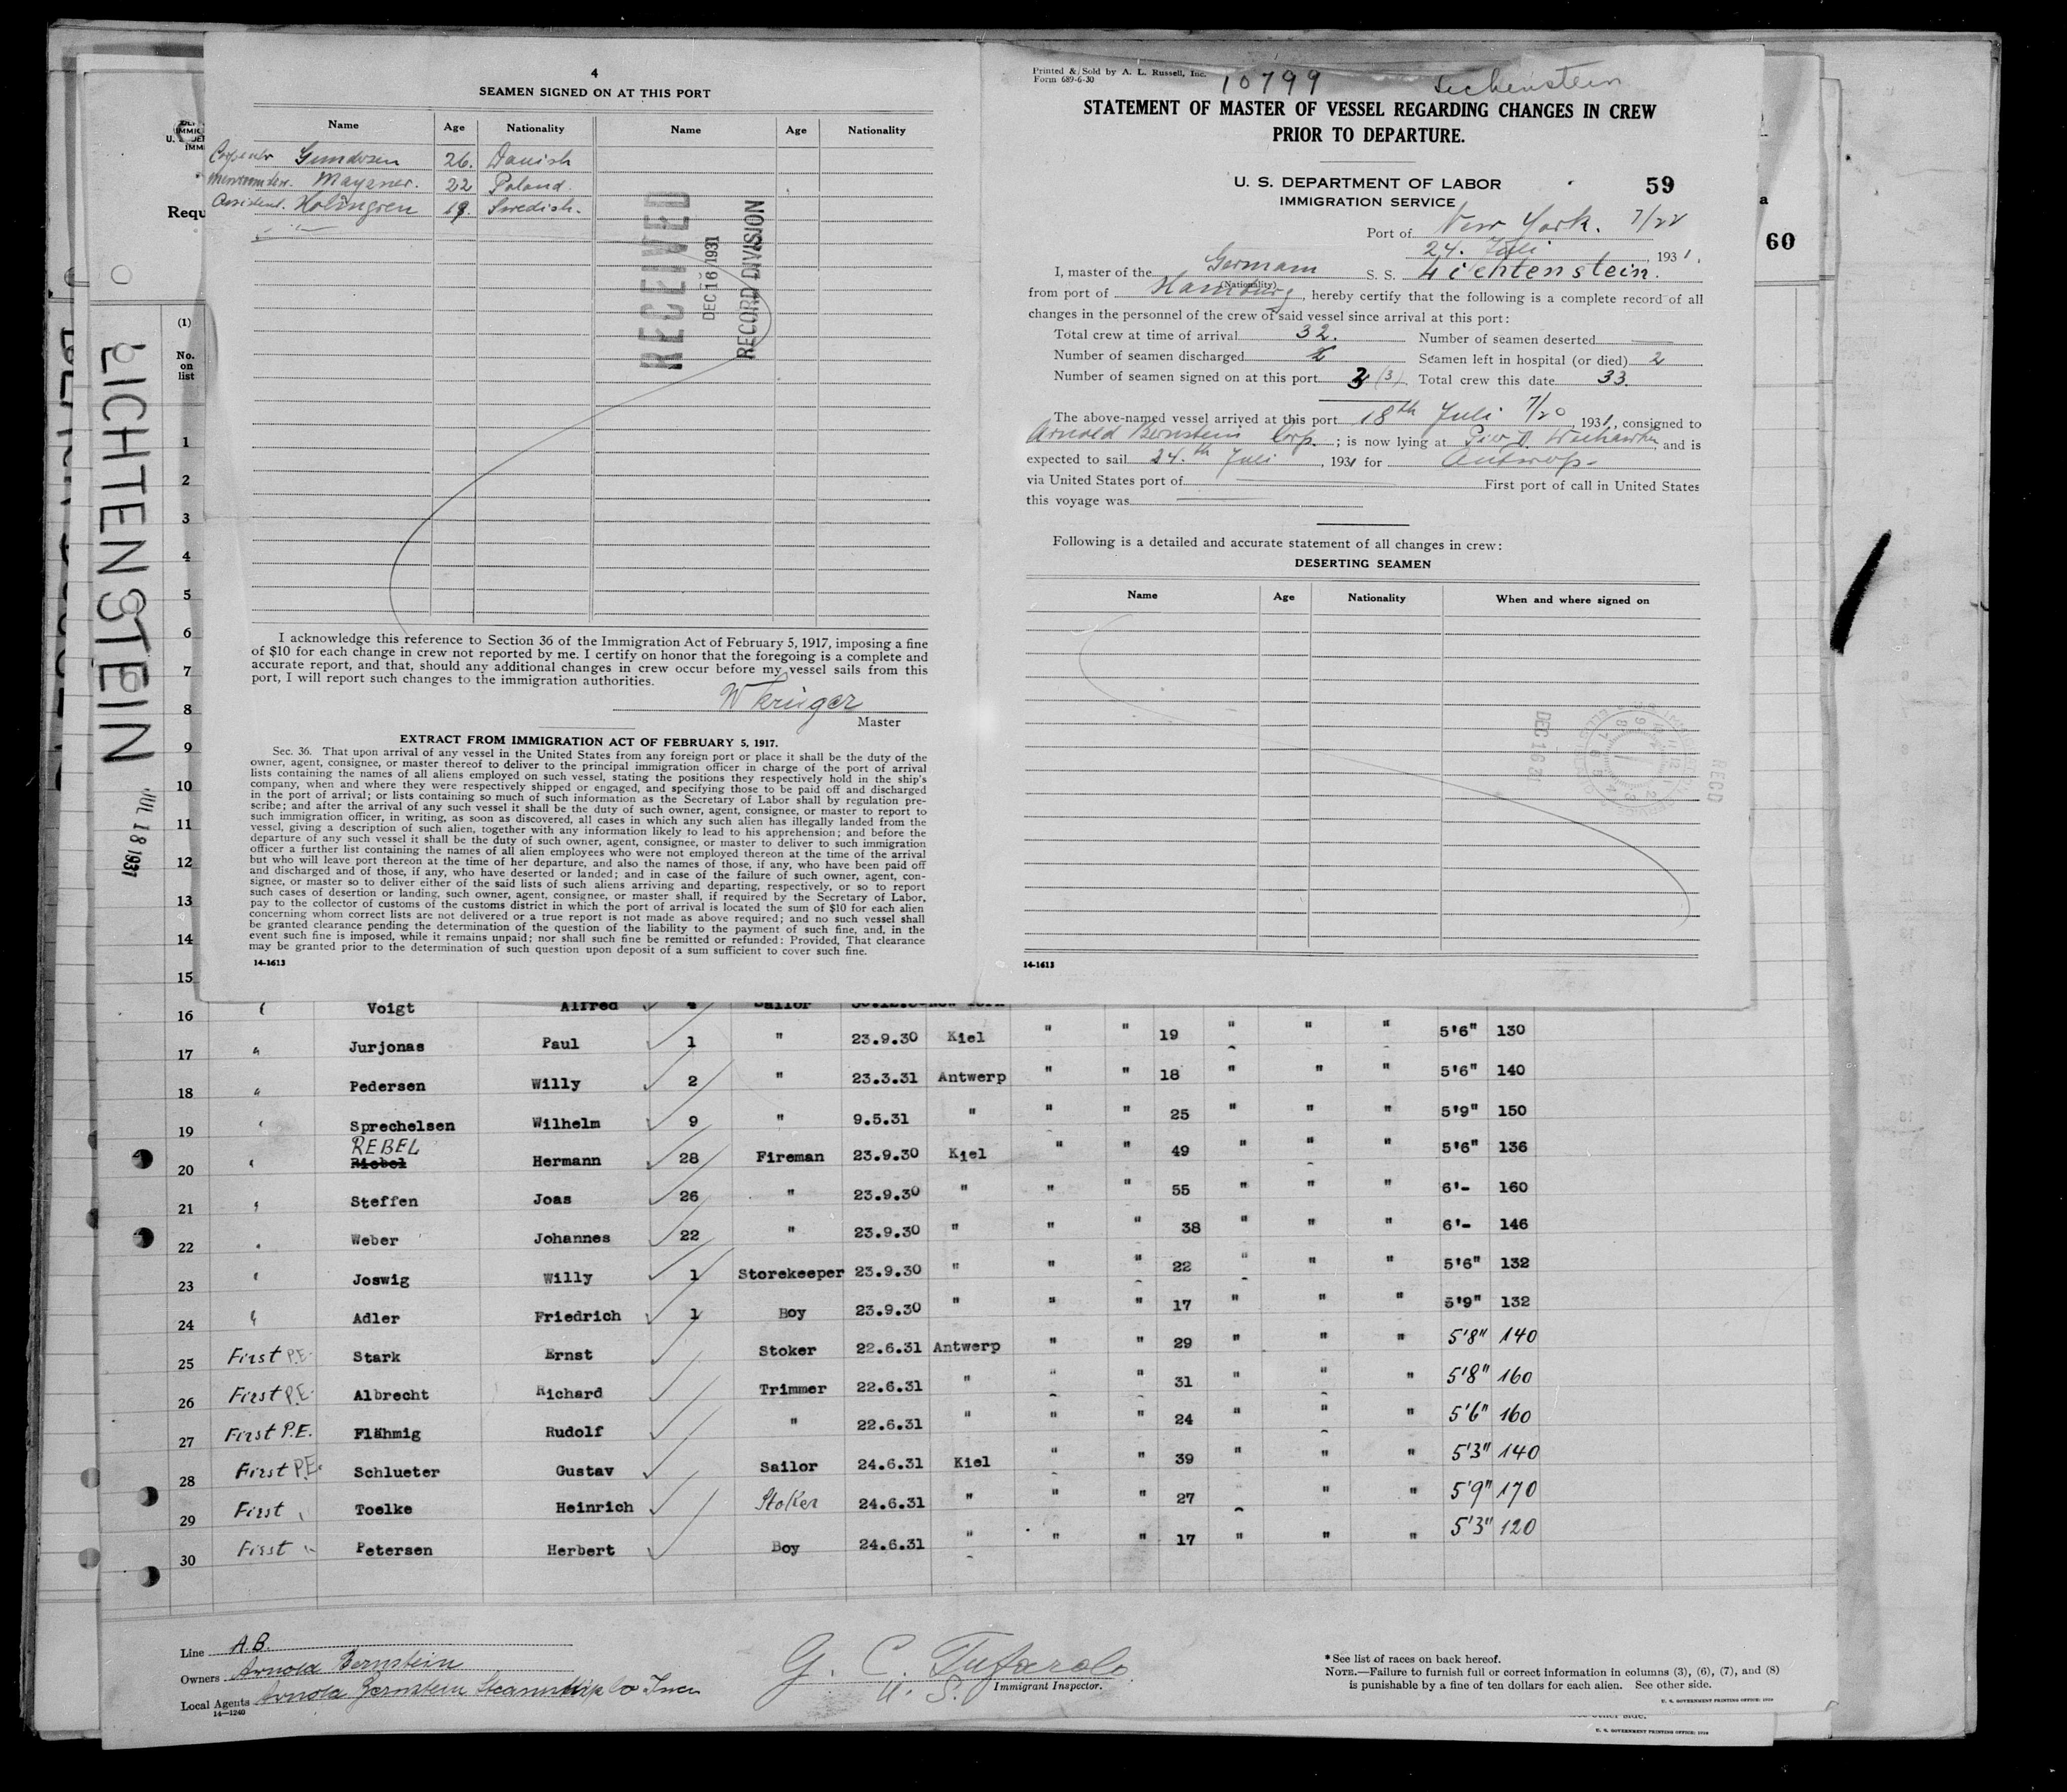 4
SEAMEN SIGNED ON AT THIS PORT
Name Age Nationality Name Age Nationality
Gundersen 26. Danish
Mayzner. 22 Poland.
Holmgren 19. Swedish.
RECEIVED
DEC 16 1931
RECORD DIVISION
I acknowledge this reference to Section 36 of the Immigration Act of February 5, 1917, imposing a fine
of $10 for each change in crew not reported by me. I certify on honor that the foregoing is a complete and
accurate report, and that, should any additional changes in crew occur before my vessel sails from this
port, I will report such changes to the immigration authorities.
W Krüger
Master
EXTRACT FROM IMMIGRATION ACT OF FEBRUARY 5, 1917.
Sec. 36. That upon arrival of any vessel in the United States from any foreign port or place it shall be the duty of the
owner, agent, consignee, or master thereof to deliver to the principal immigration officer in charge of the port of arrival
lists containing the names of all aliens employed on such vessel, stating the positions they respectively hold in the ship's
company, when and where they were respectively shipped or engaged, and specifying those to be paid off and discharged
in the port of arrival; or lists containing so much of such information as the Secretary of Labor shall by regulation pre-
scribe; and after the arrival of any such vessel it shall be the duty of such owner, agent, consignee, or master to report to
such immigration officer, in writing, as soon as discovered, all cases in which any such alien has illegally landed from the
vessel, giving a description of such alien, together with any information likely to lead to his apprehension; and before the
departure of any such vessel it shall be the duty of such owner, agent, consignee, or master to deliver to such immigration
officer a further list containing the names of all alien employees who were not employed thereon at the time of the arrival
but who will leave port thereon at the time of her departure, and also the names of those, if any, who have been paid off
and discharged and of those, if any, who have deserted or landed; and in case of the failure of such owner, agent, con-
signee, or master so to deliver either of the said lists of such aliens arriving and departing, respectively, or so to report
such cases of desertion or landing, such owner, agent, consignee, or master shall, if required by the Secretary of Labor,
pay to the collector of customs of the customs district in which the port of arrival is located the sum of $10 for each alien
concerning whom correct lists are not delivered or a true report is not made as above required; and no such vessel shall
be granted clearance pending the determination of the question of the liability to the payment of such fine, and, in the
event such fine is imposed, while it remains unpaid; nor shall such fine be remitted or refunded: Provided, That clearance
may be granted prior to the determination of such question upon deposit of a sum sufficient to cover such fine.
14-1613
Printed & Sold by A. L. Russell, Inc.
Form 689-6-30
10799
STATEMENT OF MASTER OF VESSEL REGARDING CHANGES IN CREW
PRIOR TO DEPARTURE.
U. S. DEPARTMENT OF LABOR 59
IMMIGRATION SERVICE
Port of New York. 7/22
24. Juli, 1931.
I, master of the German S. S. Lichtenstein.
(Nationality)
from port of Hamburg, hereby certify that the following is a complete record of all
changes in the personnel of the crew of said vessel since arrival at this port:
Total crew at time of arrival 32. Number of seamen deserted
Number of seamen discharged Seamen left in hospital (or died) 2
Number of seamen signed on at this port 3 (3) Total crew this date 33.
The above-named vessel arrived at this port 18th Juli 7/20, 1931, consigned to
Arnold Bernstein Corp.; is now lying at Pier D. Weehawken and is
expected to sail 24.th Juli, 1931 for Antwerp
via United States port of First port of call in United States
this voyage was
Following is a detailed and accurate statement of all changes in crew:
DESERTING SEAMEN
Name Age Nationality When and where signed on
REC'D
14-1613
60
Requ
LICHTENSTEIN
JUL 18 1931
(1)
No.
on
list
1
2
3
4
5
6
7
8
9
10
11
12
13
14
15
16 " Voigt Alfred 4 Sailor New York
17 " Jurjonas Paul 1 " 23.9.30 Kiel " " 19 " " " 5'6" 130
18 " Pedersen Willy 2 " 23.3.31 Antwerp " " 18 " " " 5'6" 140
19 " Sprechelsen Wilhelm 9 " 9.5.31 " " " 25 " " " 5'9" 150
REBEL
20 " Riebel Hermann 28 Fireman 23.9.30 Kiel " " 49 " " " 5'6" 136
21 " Steffen Joas 26 " 23.9.30 " " " 55 " " " 6'- 160
22 " Weber Johannes 22 " 23.9.30 " " " 38 " " " 6'- 146
23 " Joswig Willy 1 Storekeeper 23.9.30 " " " 22 " " " 5'6" 132
24 " Adler Friedrich 1 Boy 23.9.30 " " " 17 " " " 5'9" 132
25 First P.E. Stark Ernst Stoker 22.6.31 Antwerp " " 29 " " " 5'8" 140
26 First P.E. Albrecht Richard Trimmer 22.6.31 " " " 31 " " " 5'8" 160
27 First P.E. Flähmig Rudolf " 22.6.31 " " " 24 " " " 5'6" 160
28 First P.E. Schlueter Gustav Sailor 24.6.31 Kiel " " 39 " " " 5'3" 140
29 First " Toelke Heinrich Stoker 24.6.31 " " " 27 " " 5'9" 170
30 First " Petersen Herbert Boy 24.6.31 " " " 17 " " " 5'3" 120
Line A.B.
Owners Arnold Bernstein
Local Agents Arnold Bernstein Steamship Co Inc
14—1240
G. C. Tufarolo
U. S. Immigrant Inspector.
* See list of races on back hereof.
NOTE.—Failure to furnish full or correct information in columns (3), (6), (7), and (8)
is punishable by a fine of ten dollars for each alien. See other side.
U. S. GOVERNMENT PRINTING OFFICE: 1929
U. S. GOVERNMENT PRINTING OFFICE: 1929